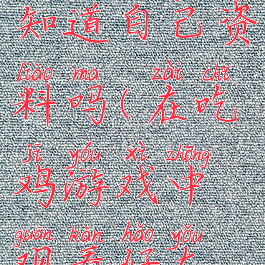 知道自己资
liào ma zài chī
料吗(在吃
jī yóu xì zhōng
鸡游戏中
guān kàn hǎo yǒu
观看好友